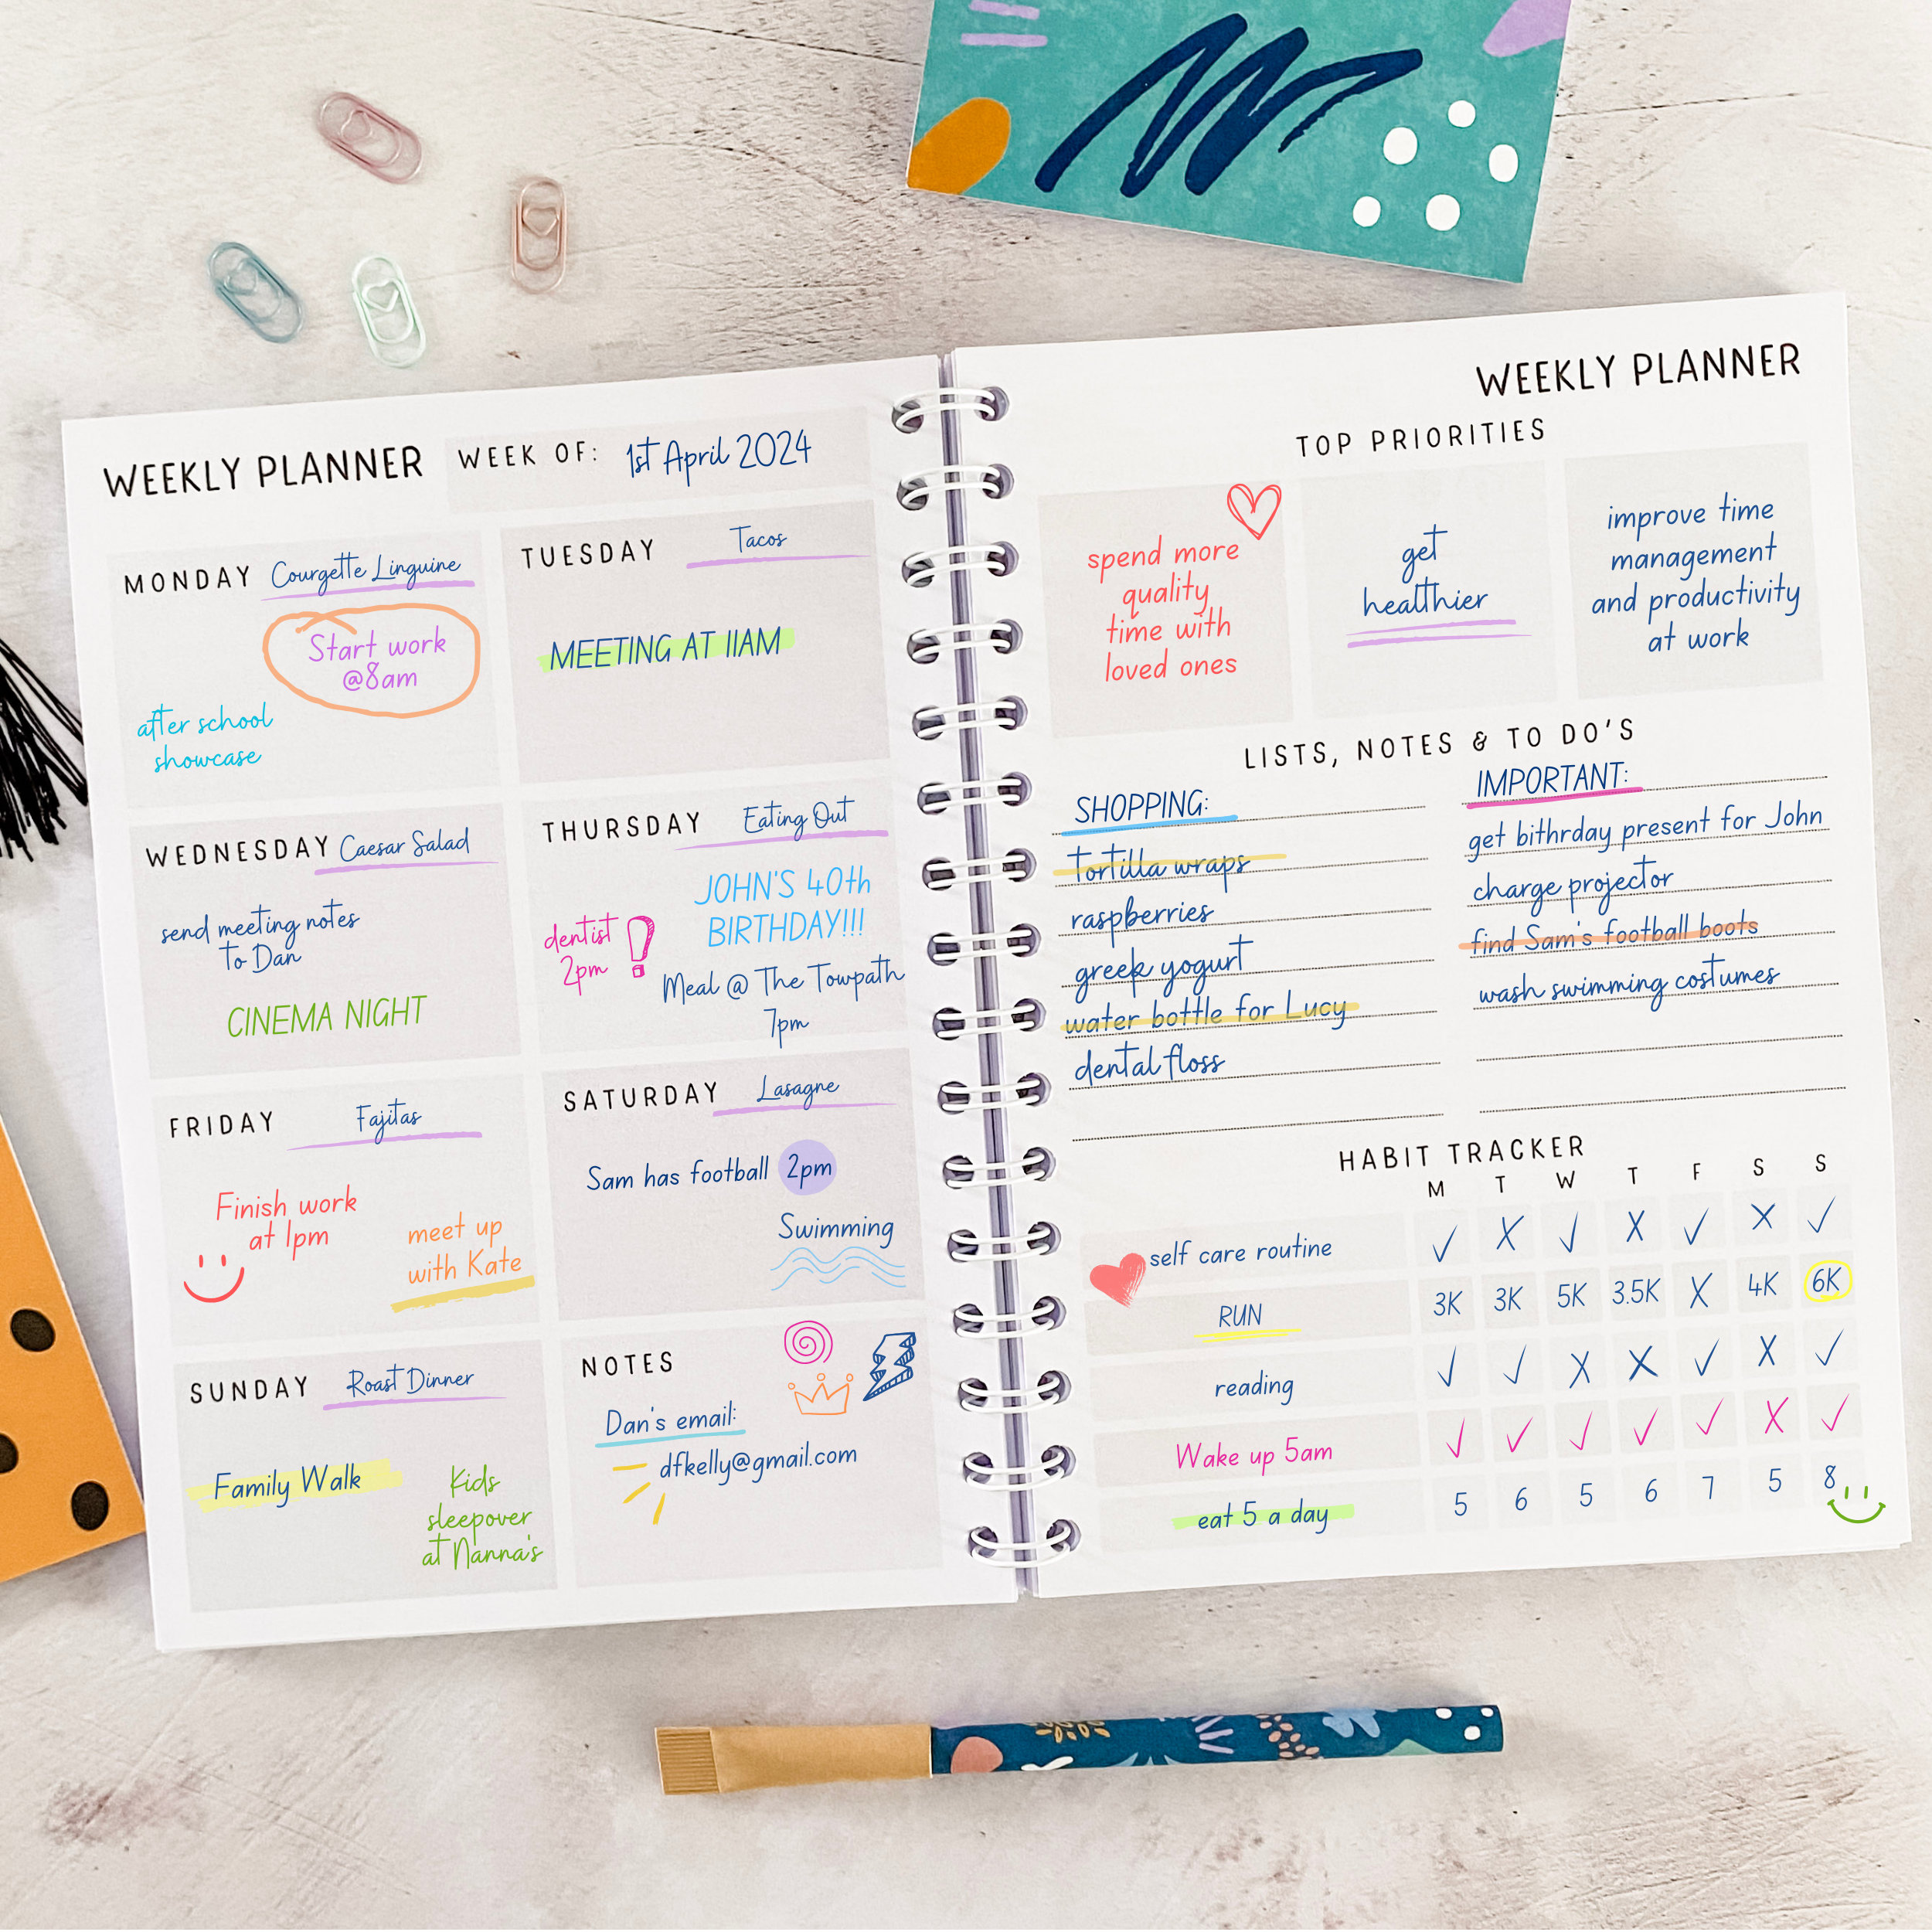 WEEKLY PLANNER WEEK OF: 1st April 2024
MONDAY Courgette Linguine
Start work
@8am
after school
showcase
TUESDAY Tacos
MEETING AT 11AM
WEDNESDAY Caesar Salad
send meeting notes
to Dan
CINEMA NIGHT
THURSDAY Eating Out
JOHN'S 40th
BIRTHDAY!!!
dentist
2pm !
Meal @ The Towpath
7pm
FRIDAY Fajitas
Finish work
at 1pm
meet up
with Kate
SATURDAY Lasagne
Sam has football 2pm
Swimming
SUNDAY Roast Dinner
Family Walk
Kids
sleepover
at Nanna's
NOTES
Dan's email:
dfkelly@gmail.com
WEEKLY PLANNER
TOP PRIORITIES
spend more
quality
time with
loved ones
get
healthier
improve time
management
and productivity
at work
LISTS, NOTES & TO DO'S
SHOPPING:
tortilla wraps
raspberries
greek yogurt
water bottle for Lucy
dental floss
IMPORTANT:
get bithrday present for John
charge projector
find Sam's football boots
wash swimming costumes
HABIT TRACKER
M T W T F S S
self care routine ✓ X ✓ X ✓ X ✓
RUN 3K 3K 5K 3.5K X 4K 6K
reading ✓ ✓ X X ✓ X ✓
Wake up 5am ✓ ✓ ✓ ✓ ✓ X ✓
eat 5 a day 5 6 5 6 7 5 8